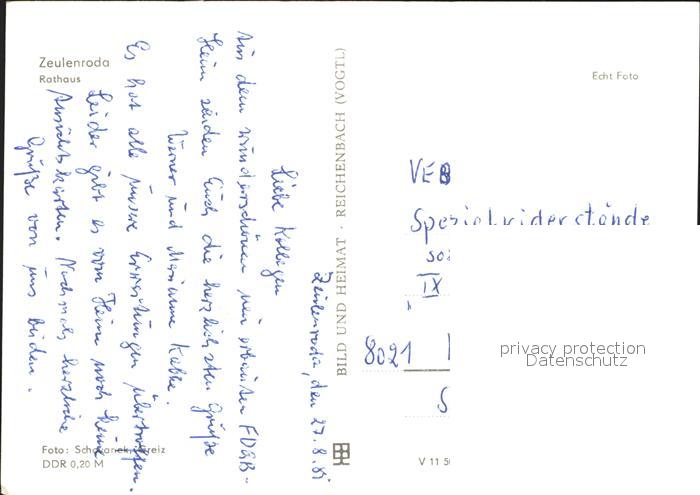 Zeulenroda
Rathaus
Echt Foto
Zeulenroda, den 27.8.85
Liebe Kollegen
Aus dem wunderschönen neu erbauten FDGB-
Heim senden Euch die herzlichsten Grüße
Werner und Marianne
Es hat alle unsere Erwartungen übertroffen.
Leider gibt es vom Heim noch keine
Ansichtskarten. Nochmals herzliche
Grüße von uns beiden.
BILD UND HEIMAT · REICHENBACH (VOGTL)
VEB
Spezialwiderstände
IX
8021
privacy protection
Datenschutz
Foto: Greiz
DDR 0,20 M
V 11 50